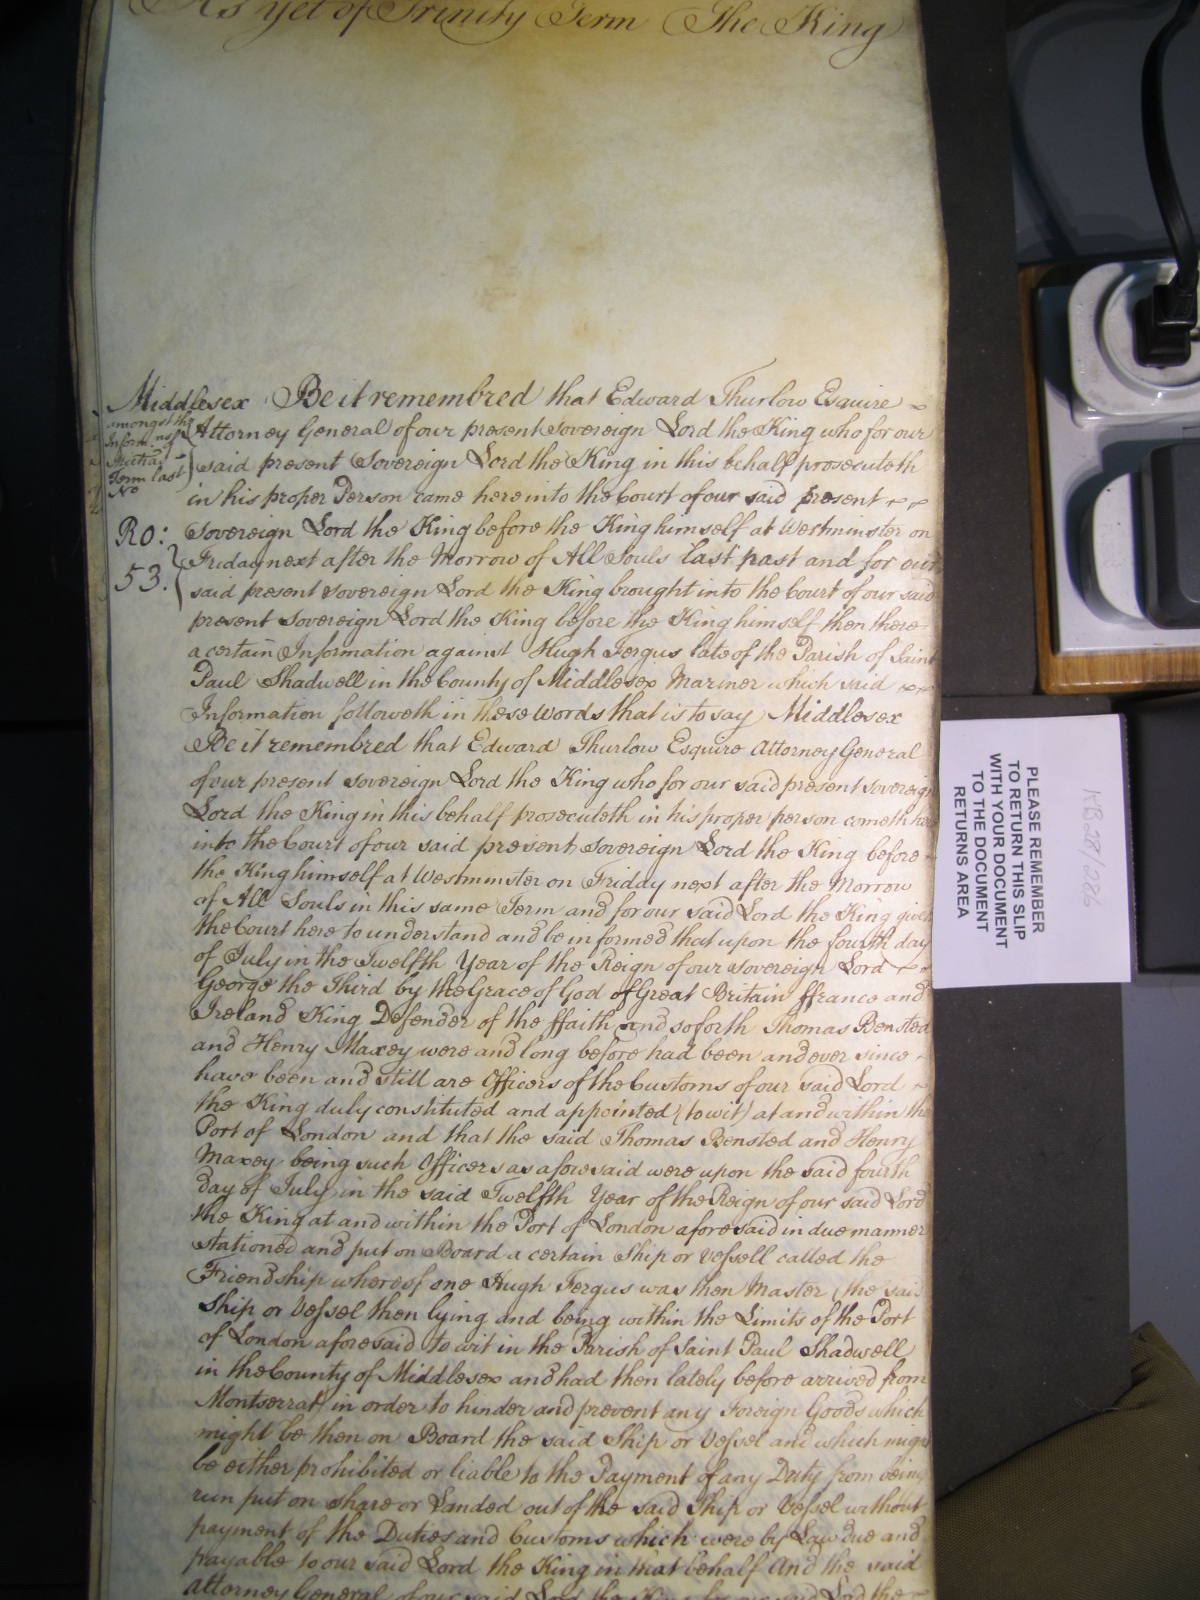 As yet of Trinity Term The King
Middlesex Be it remembred that Edward Thurlow Esquire
amongst the
Inform. nspr
Term last
No
Attorney General of our present Sovereign Lord the King who for our
said present Sovereign Lord the King in this behalf prosecuteth
in his proper Person came here into the Court of our said present
Ro:
53.
Sovereign Lord the King before the King himself at Westminster on
Friday next after the Morrow of All Souls last past and for our
said present Sovereign Lord the King brought into the Court of our said
present Sovereign Lord the King before the King himself then there
a certain Information against Hugh Fergus late of the Parish of Saint
Paul Shadwell in the County of Middlesex Mariner which said
Information followeth in these Words that is to say Middlesex
Be it remembred that Edward Thurlow Esquire Attorney General
of our present Sovereign Lord the King who for our said present Sovereign
Lord the King in this behalf prosecuteth in his proper person cometh here
into the Court of our said present Sovereign Lord the King before
the King himself at Westminster on Friday next after the Morrow
of All Souls in this same Term and for our said Lord the King giveth
the Court here to understand and be informed that upon the fourth day
of July in the Twelfth Year of the Reign of our Sovereign Lord
George the Third by the Grace of God of Great Britain ffrance and
Ireland King Defender of the ffaith and so forth Thomas Bensted
and Henry Maxey were and long before had been and ever since
have been and still are Officers of the Customs of our said Lord
the King duly constituted and appointed (to wit) at and within the
Port of London and that the said Thomas Bensted and Henry
Maxey being such Officers as aforesaid were upon the said fourth
day of July in the said Twelfth Year of the Reign of our said Lord
the King at and within the Port of London aforesaid in due manner
stationed and put on Board a certain Ship or Vessell called the
Friendship whereof one Hugh Fergus was then Master (the said
Ship or Vessel then lying and being within the Limits of the Port
of London aforesaid to wit in the Parish of Saint Paul Shadwell
in the County of Middlesex and had then lately before arrived from
Montserrat) in order to hinder and prevent any Foreign Goods which
might be then on Board the said Ship or Vessel and which might
be either prohibited or liable to the Payment of any Duty from being
run put on shore or Landed out of the said Ship or Vessel without
payment of the Duties and Customs which were by Law due and
payable to our said Lord the King in that behalf And the said
Attorney General of our said Lord the King for our said Lord the
PLEASE REMEMBER
TO RETURN THIS SLIP
WITH YOUR DOCUMENT
TO THE DOCUMENT
RETURNS AREA
KB 28/286